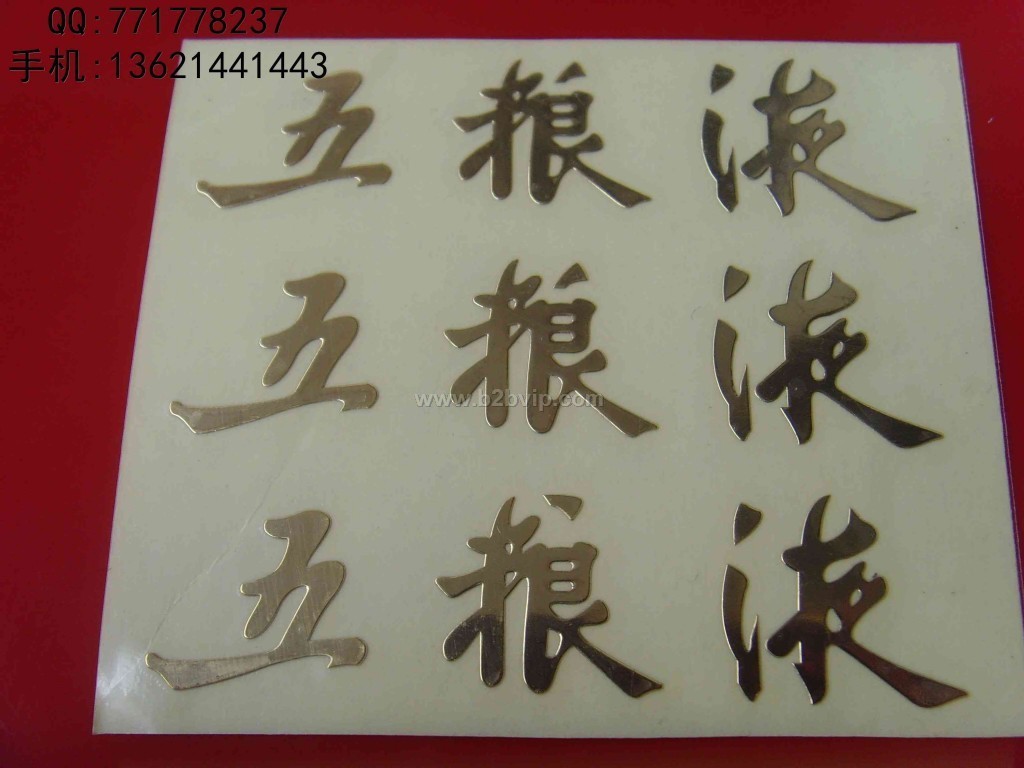 QQ:771778237
手机:13621441443
五粮液
五粮液
www.b2bvip.com
五粮液